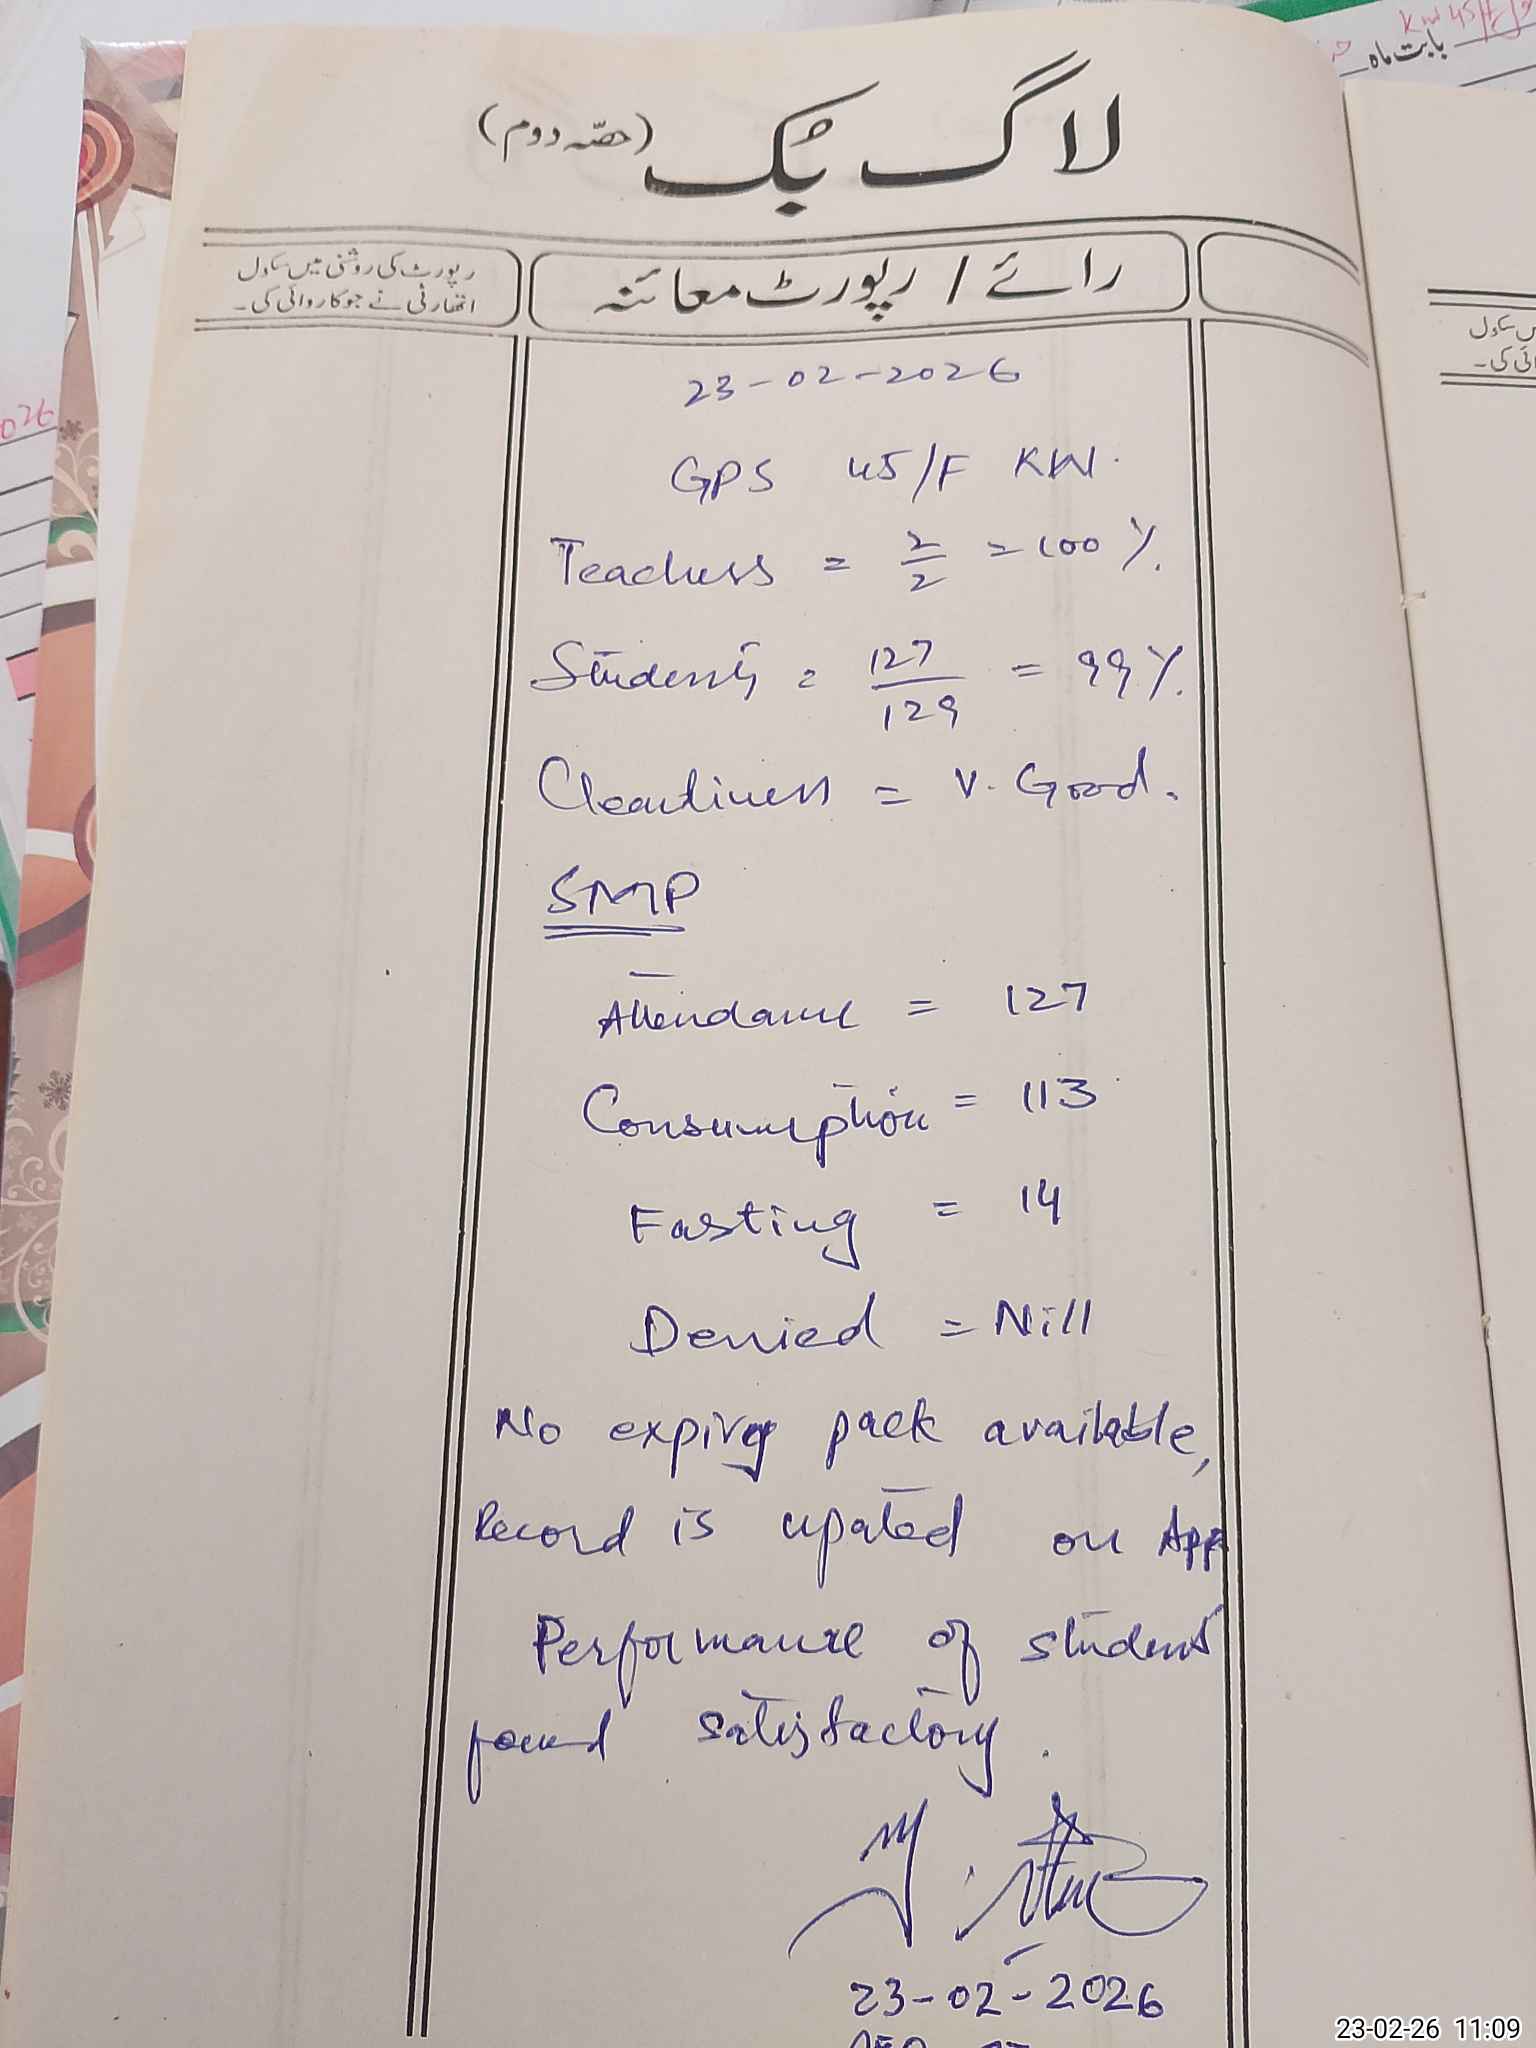 لاگ بُک (حصّہ دوم)
رائے / رپورٹ معائنہ
رپورٹ کی روشنی میں سکول
اتھارٹی نے جو کاروائی کی۔
23-02-2026
GPS 45/F KW.
Teachers = 2/2 = 100 %.
Students = 127/129 = 99 %.
Cleanliness = V. Good.
SMP
Attendance = 127
Consumption = 113
Fasting = 14
Denied = Nill
No expiry pack available,
Record is upated on App
Performance of student
found satisfactory.
23-02-2026
بابت ماہ
KW 45/F
026
23-02-26 11:09